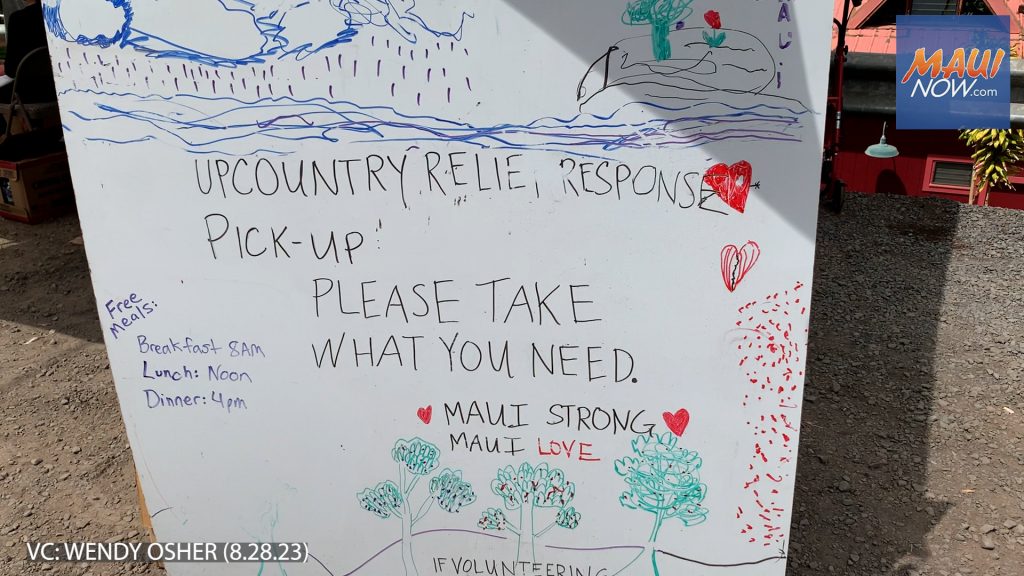 MAUI
NOW.com
UPCOUNTRY RELIEF RESPONSE
PICK-UP:
PLEASE TAKE
WHAT YOU NEED.
Free
Meals:
Breakfast 8AM
Lunch: Noon
Dinner: 4pm
MAUI STRONG
MAUI LOVE
IF VOLUNTEERING
VC: WENDY OSHER (8.28.23)